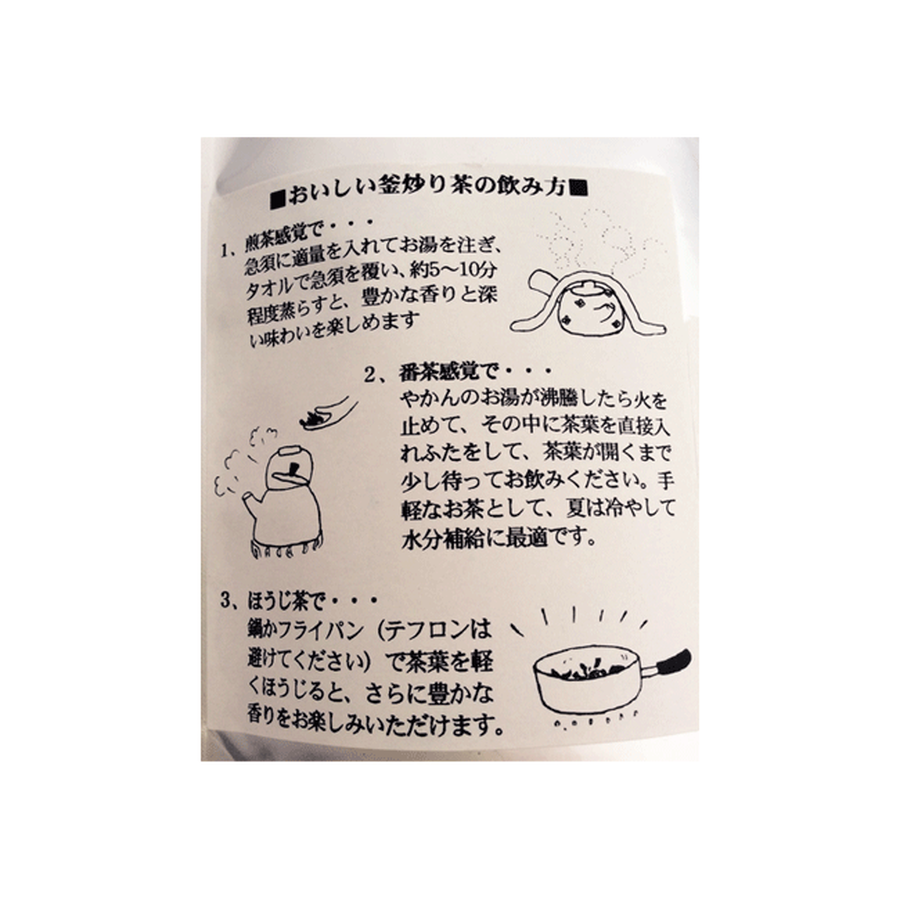 ■おいしい釜炒り茶の飲み方■
1、煎茶感覚で・・・
急須に適量を入れてお湯を注ぎ、
タオルで急須を覆い、約5～10分
程度蒸らすと、豊かな香りと深
い味わいを楽しめます
2、番茶感覚で・・・
やかんのお湯が沸騰したら火を
止めて、その中に茶葉を直接入
れふたをして、茶葉が開くまで
少し待ってお飲みください。手
軽なお茶として、夏は冷やして
水分補給に最適です。
3、ほうじ茶で・・・
鍋かフライパン（テフロンは
避けてください）で茶葉を軽
くほうじると、さらに豊かな
香りをお楽しみいただけます。